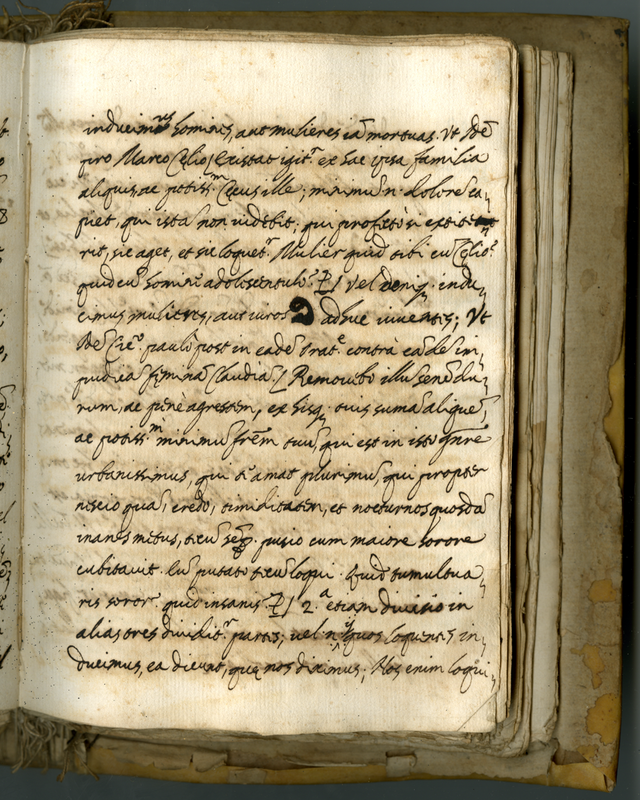 inducimus homines, aut mulieres iā mortuas. Ut Idē
pro Marco Cęlio / Existat igit.r ex hac ipsa familia
aliquis, ac potiss.m Cęcus ille; minimū n. dolorē ca„
piet, qui istā non uidebit; qui profectò si extite
rit, sic aget, et sic loquet.r Mulier quid tibi cū Cęlio?
quid cū homine adolescentulo? / Vel deniq. indu„
cimus mulieres, aut uiros adhuc uiuentes; Ut
Idē Cic.o paulò post in eadē Orat.e contrà eādē im„
pudicā fęminā Claudiā / Remouebo illū senē du„
rum, ac penè agrestem, ex hisq. tuis sumā aliquē,
ac potiss.m minimū frēm tuū, qui est in isto gñre
urbanissimus, qui tē amat plurimū, qui propter
nescio quā, credo, timiditatem, et nocturnos quosdā
inanes metus, tecū semp. pusio cum maiore sorore
cubitauit. Eū putato tecū loqui. Quid tumultua„
ris soror? quid insanis? / 2.a etiam diuisio in
alias tres diuidit.r partes; uel n. quos loquentes in„
ducimus, ea dicunt, quę nos diximus; Nos enim loqui„